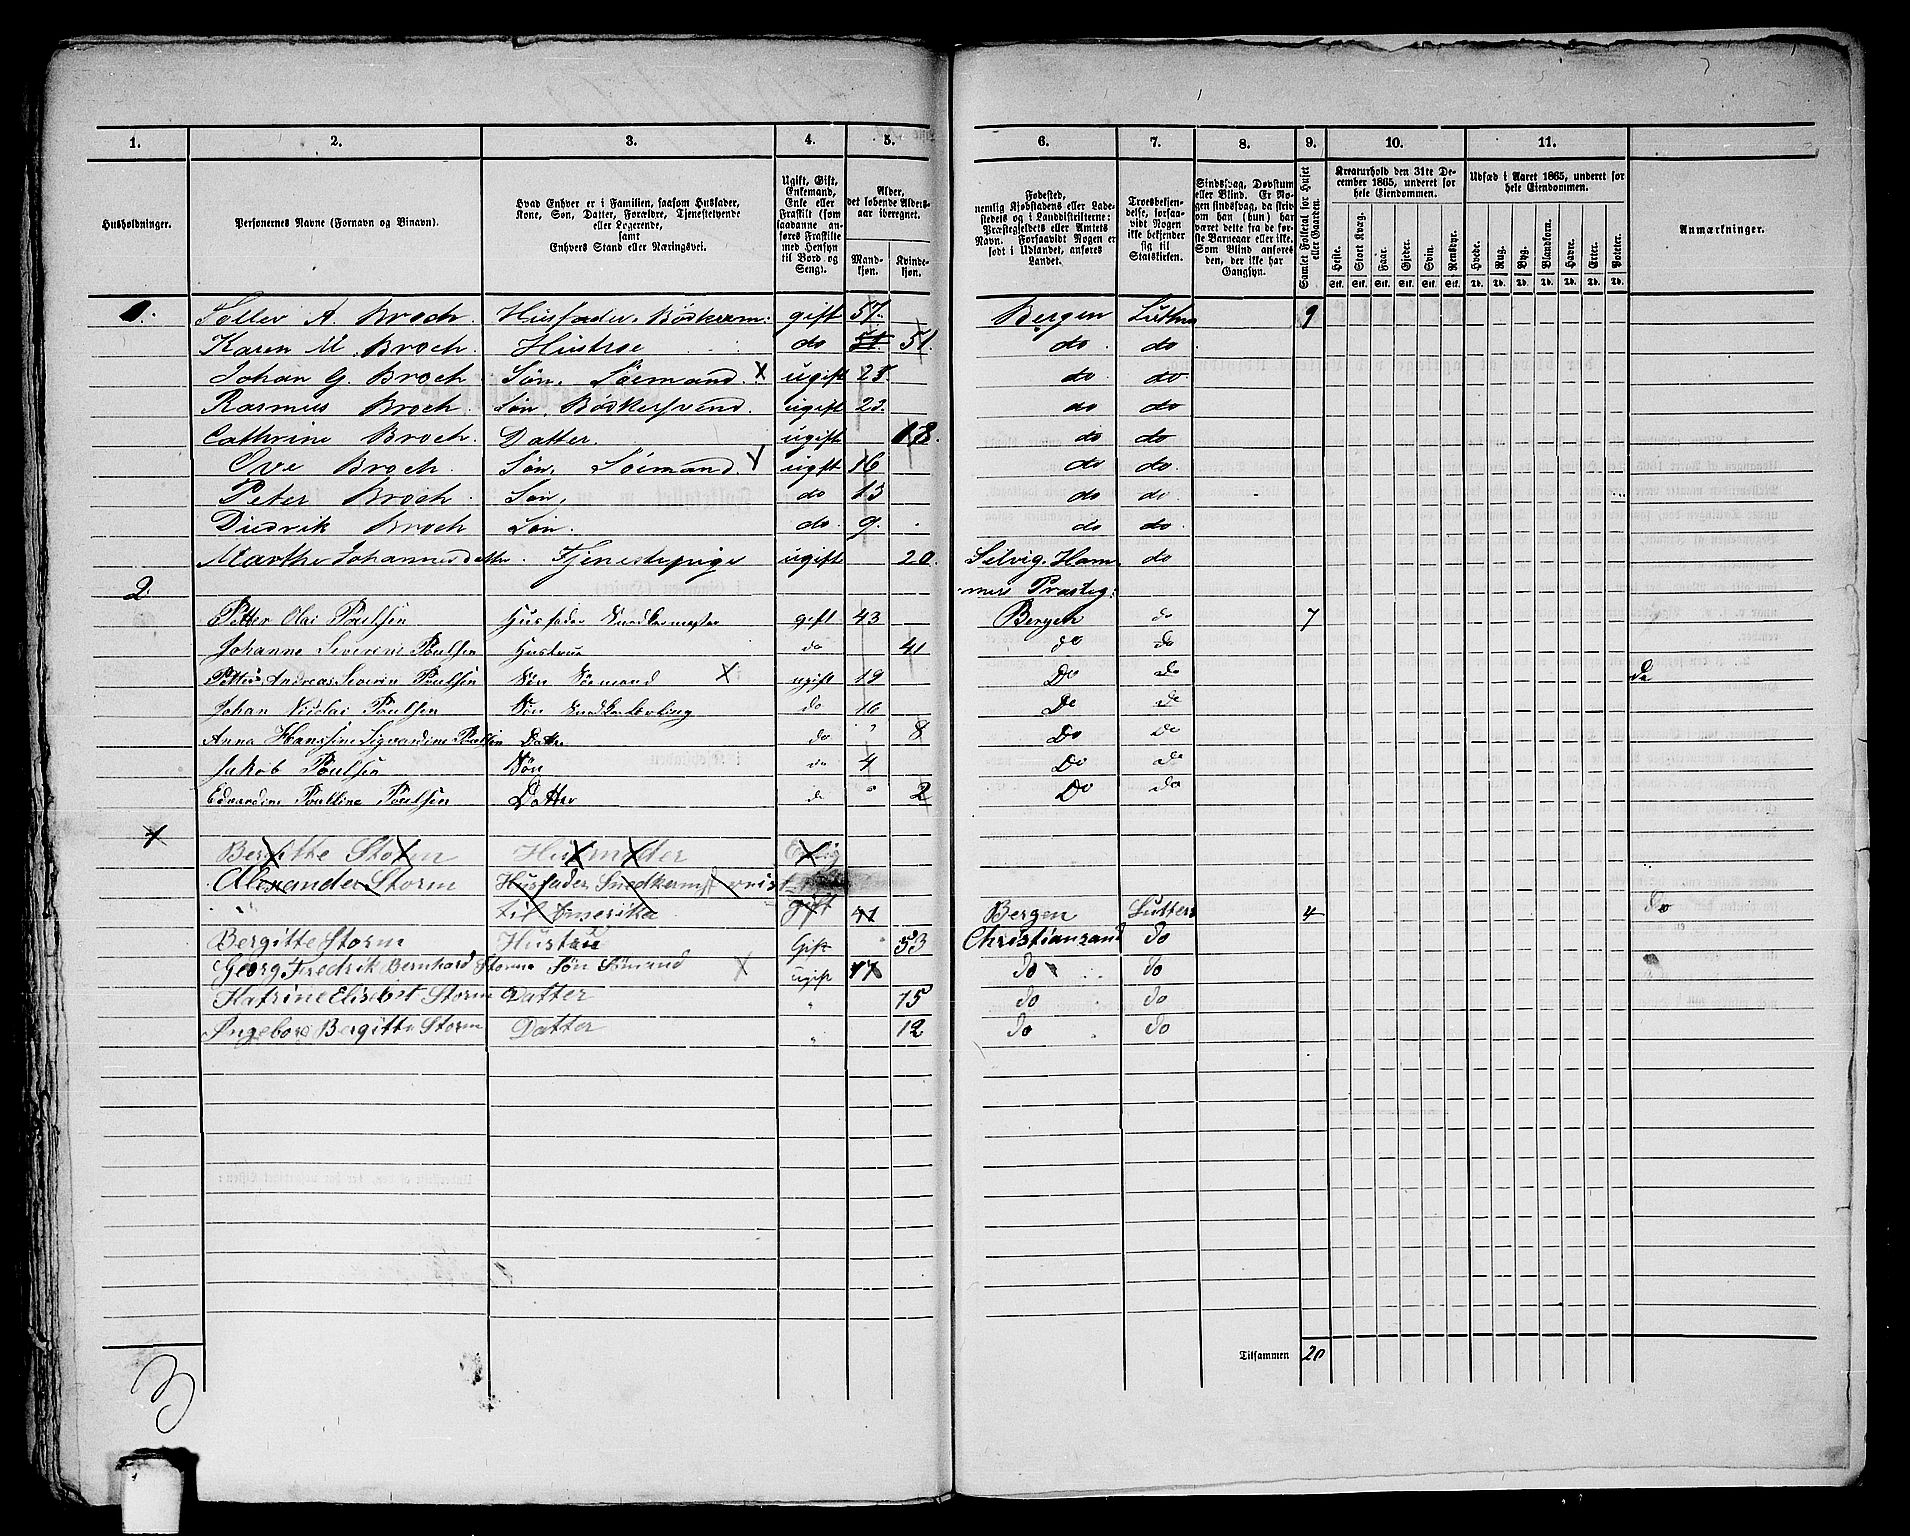 1. 2. 3. 4. 5. 6. 7. 8. 9. 10. 11.
Husholdninger.
Personernes Navne (Fornavn og Binavn).
Hvad Enhver er i Familien, saasom Husfader,
Kone, Søn, Datter, Forældre, Tjenestetyende
eller Logerende,
samt
Enhvers Stand eller Næringsvei.
Ugift, Gift,
Enkemand,
Enke eller
Fraskilt (som
saadanne an-
føres Fraskilte
med Hensyn
til Bord og
Seng).
Alder,
det løbende Alders-
aar iberegnet.
Mand-
kjøn.
Kvinde-
kjøn.
Fødested,
nemlig Kjøbstadens eller Lade-
stedets og i Landdistrikterne:
Præstegjeldets eller Amtets
Navn. Forsaavidt Nogen er
født i Udlandet, anføres
Landet.
Troesbekjen-
delse, forsaa-
vidt Nogen
ikke bekjender
sig til
Statskirken.
Sindssvag, Døvstum
eller Blind. Er No-
gen sindssvag, da skri-
ves om han (hun) har
været dette fra de før-
ste Barneaar eller ikke.
Som Blind anføres
den, der ikke har
Gangsyn.
Samlet Folketal for Huset
eller Gaarden.
Kreaturhold den 31te De-
cember 1865, underet for
hele Eiendommen.
Heste. Stort Kvæg. Faar. Gjeder. Svin. Rensdyr.
Stk. Stk. Stk. Stk. Stk. Stk.
Udsæd i Aaret 1865, underet for
hele Eiendommen.
Hvede. Rug. Byg. Blandkorn. Havre. Erter. Poteter.
Td. Td. Td. Td. Td. Td. Td.
Anmærkninger.
1. Toller A. Broch. Husfader. Bødkerm: gift 57. Bergen Luthra 9
Karen M. Broch. Hustroe do 51 51. do. do.
Johan G. Broch Søn. Søemand. X ugift 25. do do.
Rasmus Broch. Søn Bødkersvend. ugift 23. do do
Cathrine Broch. Datter. ugift 18. do do
Ove Broch. Søn. Søemand. ugift 16 do do.
Peter Broch. Søn. do 13 do do
Diedrik Broch Søn. do. 9. do do.
Marthe Johannesdatter. Tjenestepige ugift 20. Selvig. Ham- do
2. mers Præsteg:
Petter Olai Poulsen Husfader Snedkermester gift 43 Bergen do 7
Johanne Severine Poulsen Hustrue do 41 do do
Petter Andreas Severin Poulsen Søn Sømand X ugift 19 Do do do
Johan Nicolai Poulsen Søn Snedkerlærling do 16 Do do
Anna Hansine Sigvardine Poulsen Datter do " 8 Do Do
Jakob Poulsen Søn do 4 Do do
Edvardine Pouline Poulsen Datter do " 2 Do do
Bergitte Storm Husmoder
Alexander Storm Husfader Snedkerms reist
til Amerika gift 41 Bergen Lutters 4 do
Bergitte Storm Hustru Gift " 53 Christiansand do
Georg Fredrik Bernhard Storm Søn Sømand X ugift 17 do do
Katrine Elisabet Storm Datter " 15 do do
Ingeborg Bergitte Storm Datter " 12 do do
Tilsammen 20
3